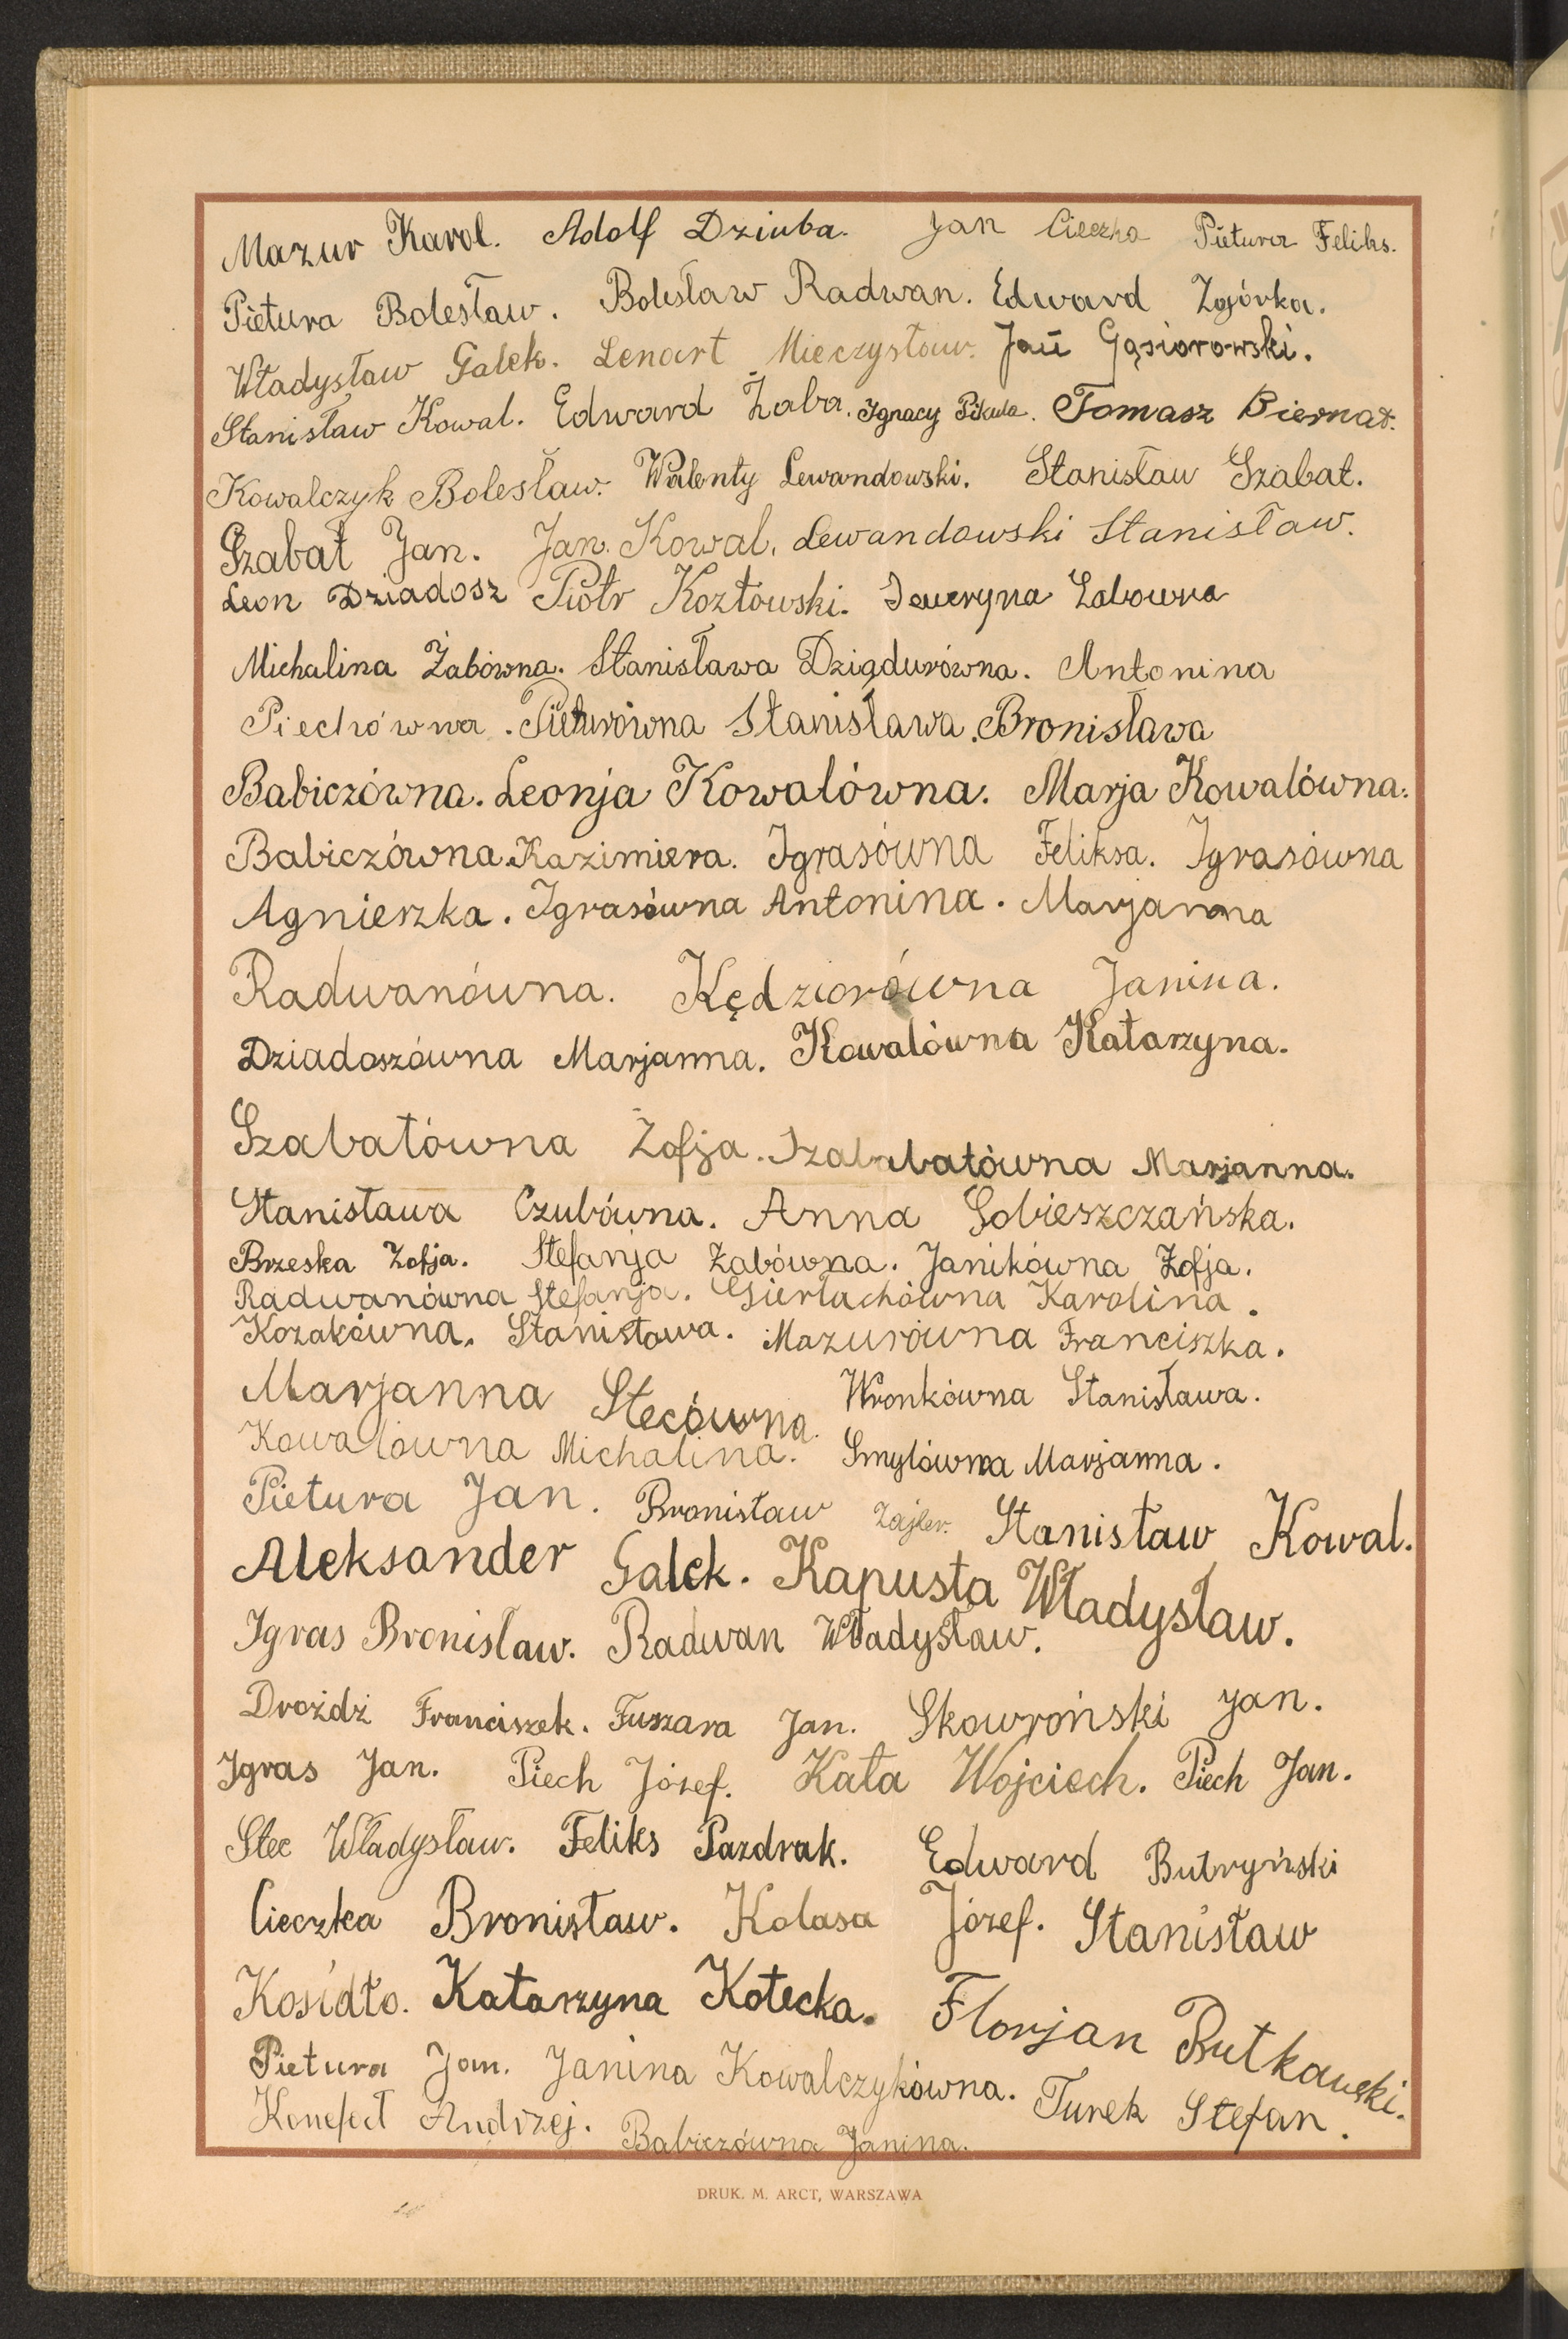 Mazur Karol. Adolf Dziuba. Jan Cieczka Pietura Feliks.
Pietura Bolesław. Bolesław Radwan. Edward Zgórka.
Władysław Galek. Lenart Mieczysław. Jan Gąsiorowski.
Stanisław Kowal. Edward Żaba. Ignacy Pikula. Tomasz Biernat.
Kowalczyk Bolesław. Walenty Lewandowski. Stanisław Szabat.
Szabat Jan. Jan Kowal. Lewandowski Stanisław.
Leon Dziadosz Piotr Kozłowski. Seweryna Żabowna
Michalina Żabówna. Stanisława Dziadurówna. Antonina
Piechówna. Pieturówna Stanisława. Bronisława
Babiczówna. Leonja Kowalówna. Marja Kowalówna.
Babiczówna Kazimiera. Igrasówna Feliksa. Igrasówna
Agnieszka. Igrasówna Antonina. Marjanna
Radwanówna. Kędziorówna Janina.
Dziadoszówna Marjanna. Kowalówna Katarzyna.
Szabatówna Zofja. Szababatówna Marjanna.
Stanisława Czubówna. Anna Sobieszczańska.
Brzeska Zofja. Stefanja Żabówna. Janikówna Zofja.
Radwanówna Stefanja. Gierlachówna Karolina.
Kozakówna. Stanisława. Mazurówna Franciszka.
Marjanna Stecówna. Wronkówna Stanisława.
Kowalówna Michalina. Smylówna Marjanna.
Pietura Jan. Bronisław Zajler. Stanisław Kowal.
Aleksander Galek. Kapusta Władysław.
Igras Bronisław. Radwan Władysław.
Drożdż Franciszek. Fuszara Jan. Skowroński Jan.
Igras Jan. Piech Józef. Kata Wojciech. Piech Jan.
Stec Władysław. Feliks Pazdrak. Edward Butryński
Cieczka Bronisław. Kolasa Józef. Stanisław
Kosidło. Katarzyna Kotecka. Florjan Butkowski.
Pietura Jan. Janina Kowalczykówna. Turek Stefan.
Konefeł Andrzej. Babiczówna Janina.
DRUK. M. ARCT, WARSZAWA